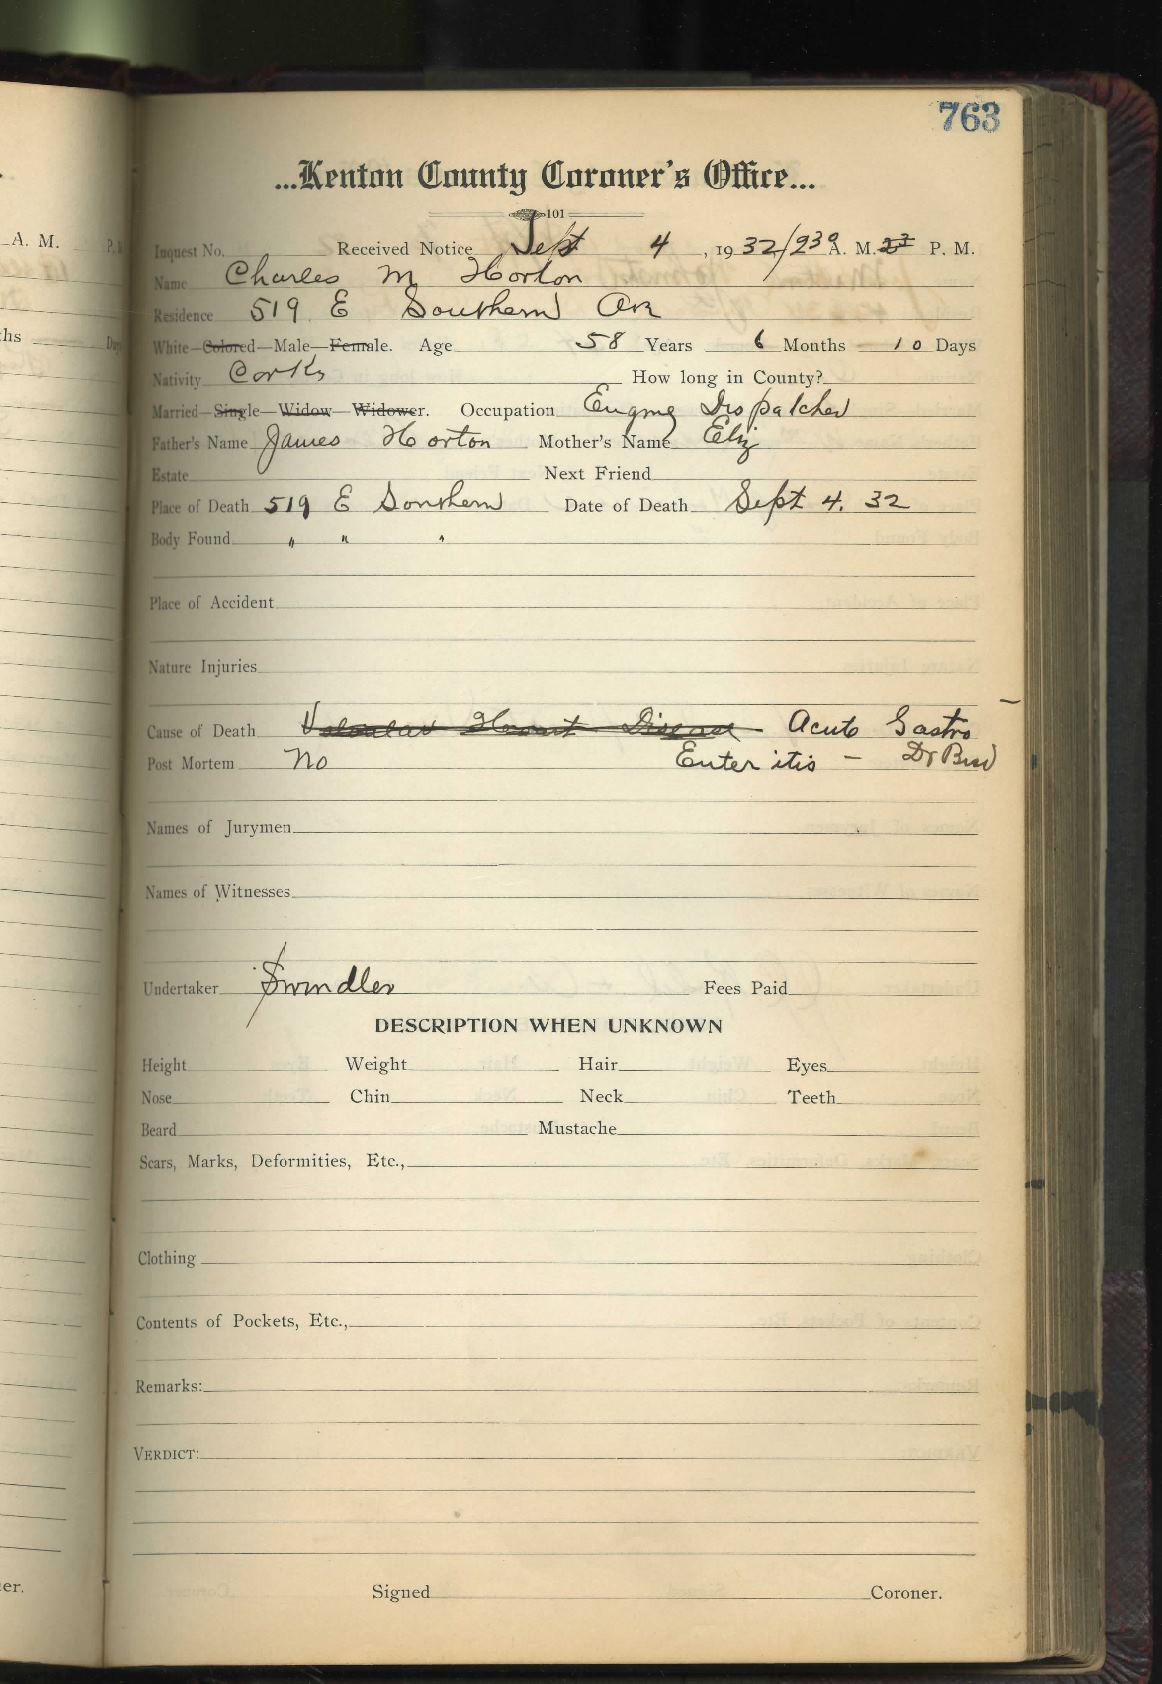 763
...Kenton County Coroner's Office...
101
A. M. P.
Inquest No. Received Notice Sept 4, 1932/9 30 A. M. P. M.
Name Charles M Horton
Residence 519 E Southern Av
ths Days
White—Colored—Male—Female. Age 58 Years 6 Months 10 Days
Nativity How long in County?
Married—Single—Widow—Widower. Occupation Engine Dispatcher
Father's Name James Horton Mother's Name Eliz
Estate Next Friend
Place of Death 519 E Southern Date of Death Sept 4. 32
Body Found " " "
Place of Accident
Nature Injuries
Cause of Death Valvular Heart Disease Acute Gastro
Post Mortem No Enteritis — Dr
Names of Jurymen
Names of Witnesses
Undertaker Swindler Fees Paid
DESCRIPTION WHEN UNKNOWN
Height Weight Hair Eyes
Nose Chin Neck Teeth
Beard Mustache
Scars, Marks, Deformities, Etc.,
Clothing
Contents of Pockets, Etc.,
Remarks:
VERDICT:
er. Signed Coroner.